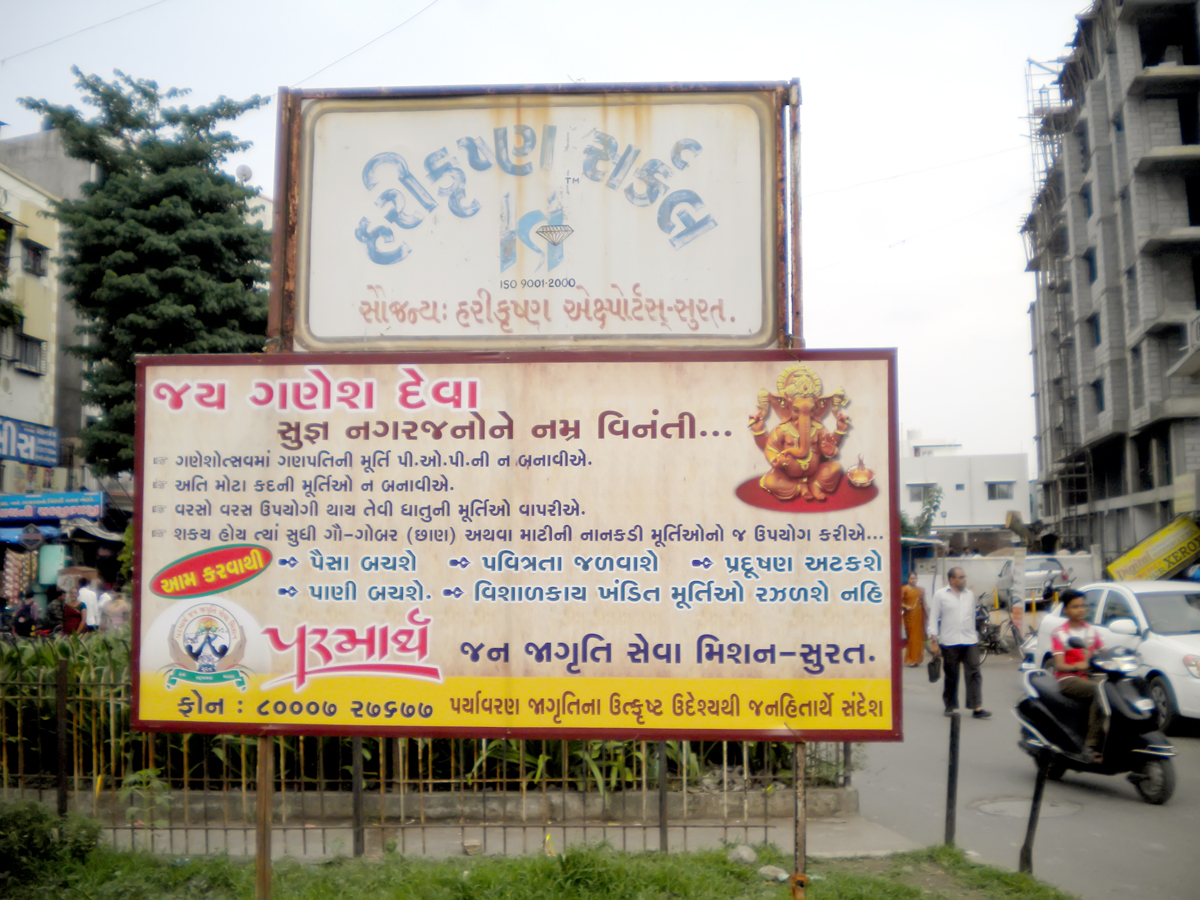 હરીકૃષ્ણ સર્કલ
TM
ISO 9001-2000
સૌજન્યઃ હરીકૃષ્ણ એક્ષ્પોર્ટસ્-સુરત.
જય ગણેશ દેવા
સુજ્ઞ નગરજનોને નમ્ર વિનંતી...
ગણેશોત્સવમાં ગણપતિની મૂર્તિ પી.ઓ.પી.ની ન બનાવીએ.
અતિ મોટા કદની મૂર્તિઓ ન બનાવીએ.
વરસો વરસ ઉપયોગી થાય તેવી ધાતુની મૂર્તિઓ વાપરીએ.
શક્ય હોય ત્યાં સુધી ગૌ-ગોબર (છાણ) અથવા માટીની નાનકડી મૂર્તિઓનો જ ઉપયોગ કરીએ...
આમ કરવાથી પૈસા બચશે પવિત્રતા જળવાશે પ્રદૂષણ અટકશે
પાણી બચશે. વિશાળકાય ખંડિત મૂર્તિઓ રઝળશે નહિ
પરમાર્થ જન જાગૃતિ સેવા મિશન-સુરત.
ફોન : ૮૦૦૦૭ ૨૭૬૭૭ પર્યાવરણ જાગૃતિના ઉત્કૃષ્ટ ઉદેશ્યથી જનહિતાર્થે સંદેશ
XEROX